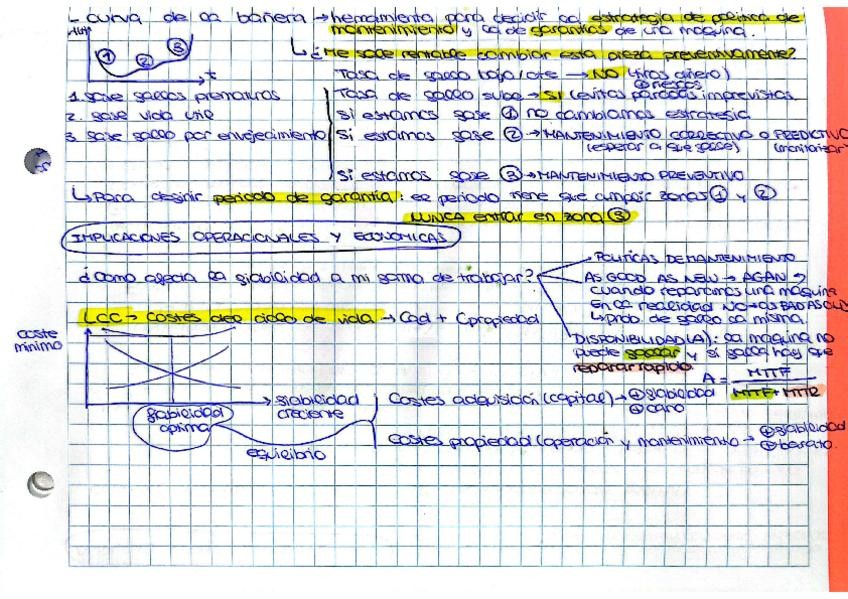 - curva de la bañera → herramienta para decidir la estrategia de política de
mantenimiento y la de garantías de una máquina.
↳ ¿Me sale rentable cambiar esta pieza preventivamente?
① ② ③ t
Tasa de fallo baja/cte → NO (tiras dinero)
⊕ riesgos
1. fase fallos prematuros
Tasa de fallo sube → SI (evitas paradas imprevistas
2. fase vida útil
Si estamos fase ① no cambiamos estrategia
3. fase fallo por envejecimiento
Si estamos fase ② → MANTENIMIENTO CORRECTIVO O PREDICTIVO
(esperar a que falle) (monitorizar)
Si estamos fase ③ → MANTENIMIENTO PREVENTIVO
↳ Para definir periodo de garantía: el periodo tiene que cumplir zonas ① y ②
NUNCA entrar en zona ③
IMPLICACIONES OPERACIONALES Y ECONOMICAS
POLITICAS DE MANTENIMIENTO
¿Cómo afecta la fiabilidad a mi forma de trabajar?
AS GOOD AS NEW → AGAN →
cuando reparamos una maquina
en la realidad NO → AS BAD AS OLD
↳ prob de fallo la misma.
LCC → costes del ciclo de vida → Cad + Cpropiedad
coste
mínimo
DISPONIBILIDAD (A): la maquina no
puede fallar y si falla hay que
reparar rápido.
A = MTTF
MTTF + MTTR
fiabilidad
creciente
fiabilidad
óptima
equilibrio
Costes adquisición (capital) → ⊕ fiabilidad
⊕ caro
Costes propiedad (operación y mantenimiento → ⊕ fiabilidad
⊕ barato.